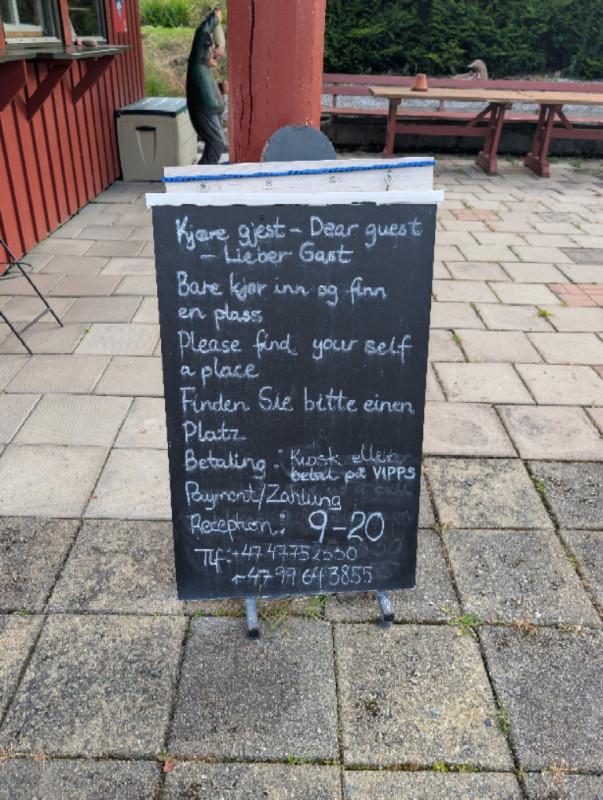 Kjære gjest - Dear guest
- Lieber Gast
Bare kjør inn og finn
en plass
Please find your self
a place
Finden Sie bitte einen
Platz
Betaling: Kiosk eller
betal på VIPPS
Payment/Zahlung
Reception: 9-20
Tlf: +47 47752550
+47 99643855